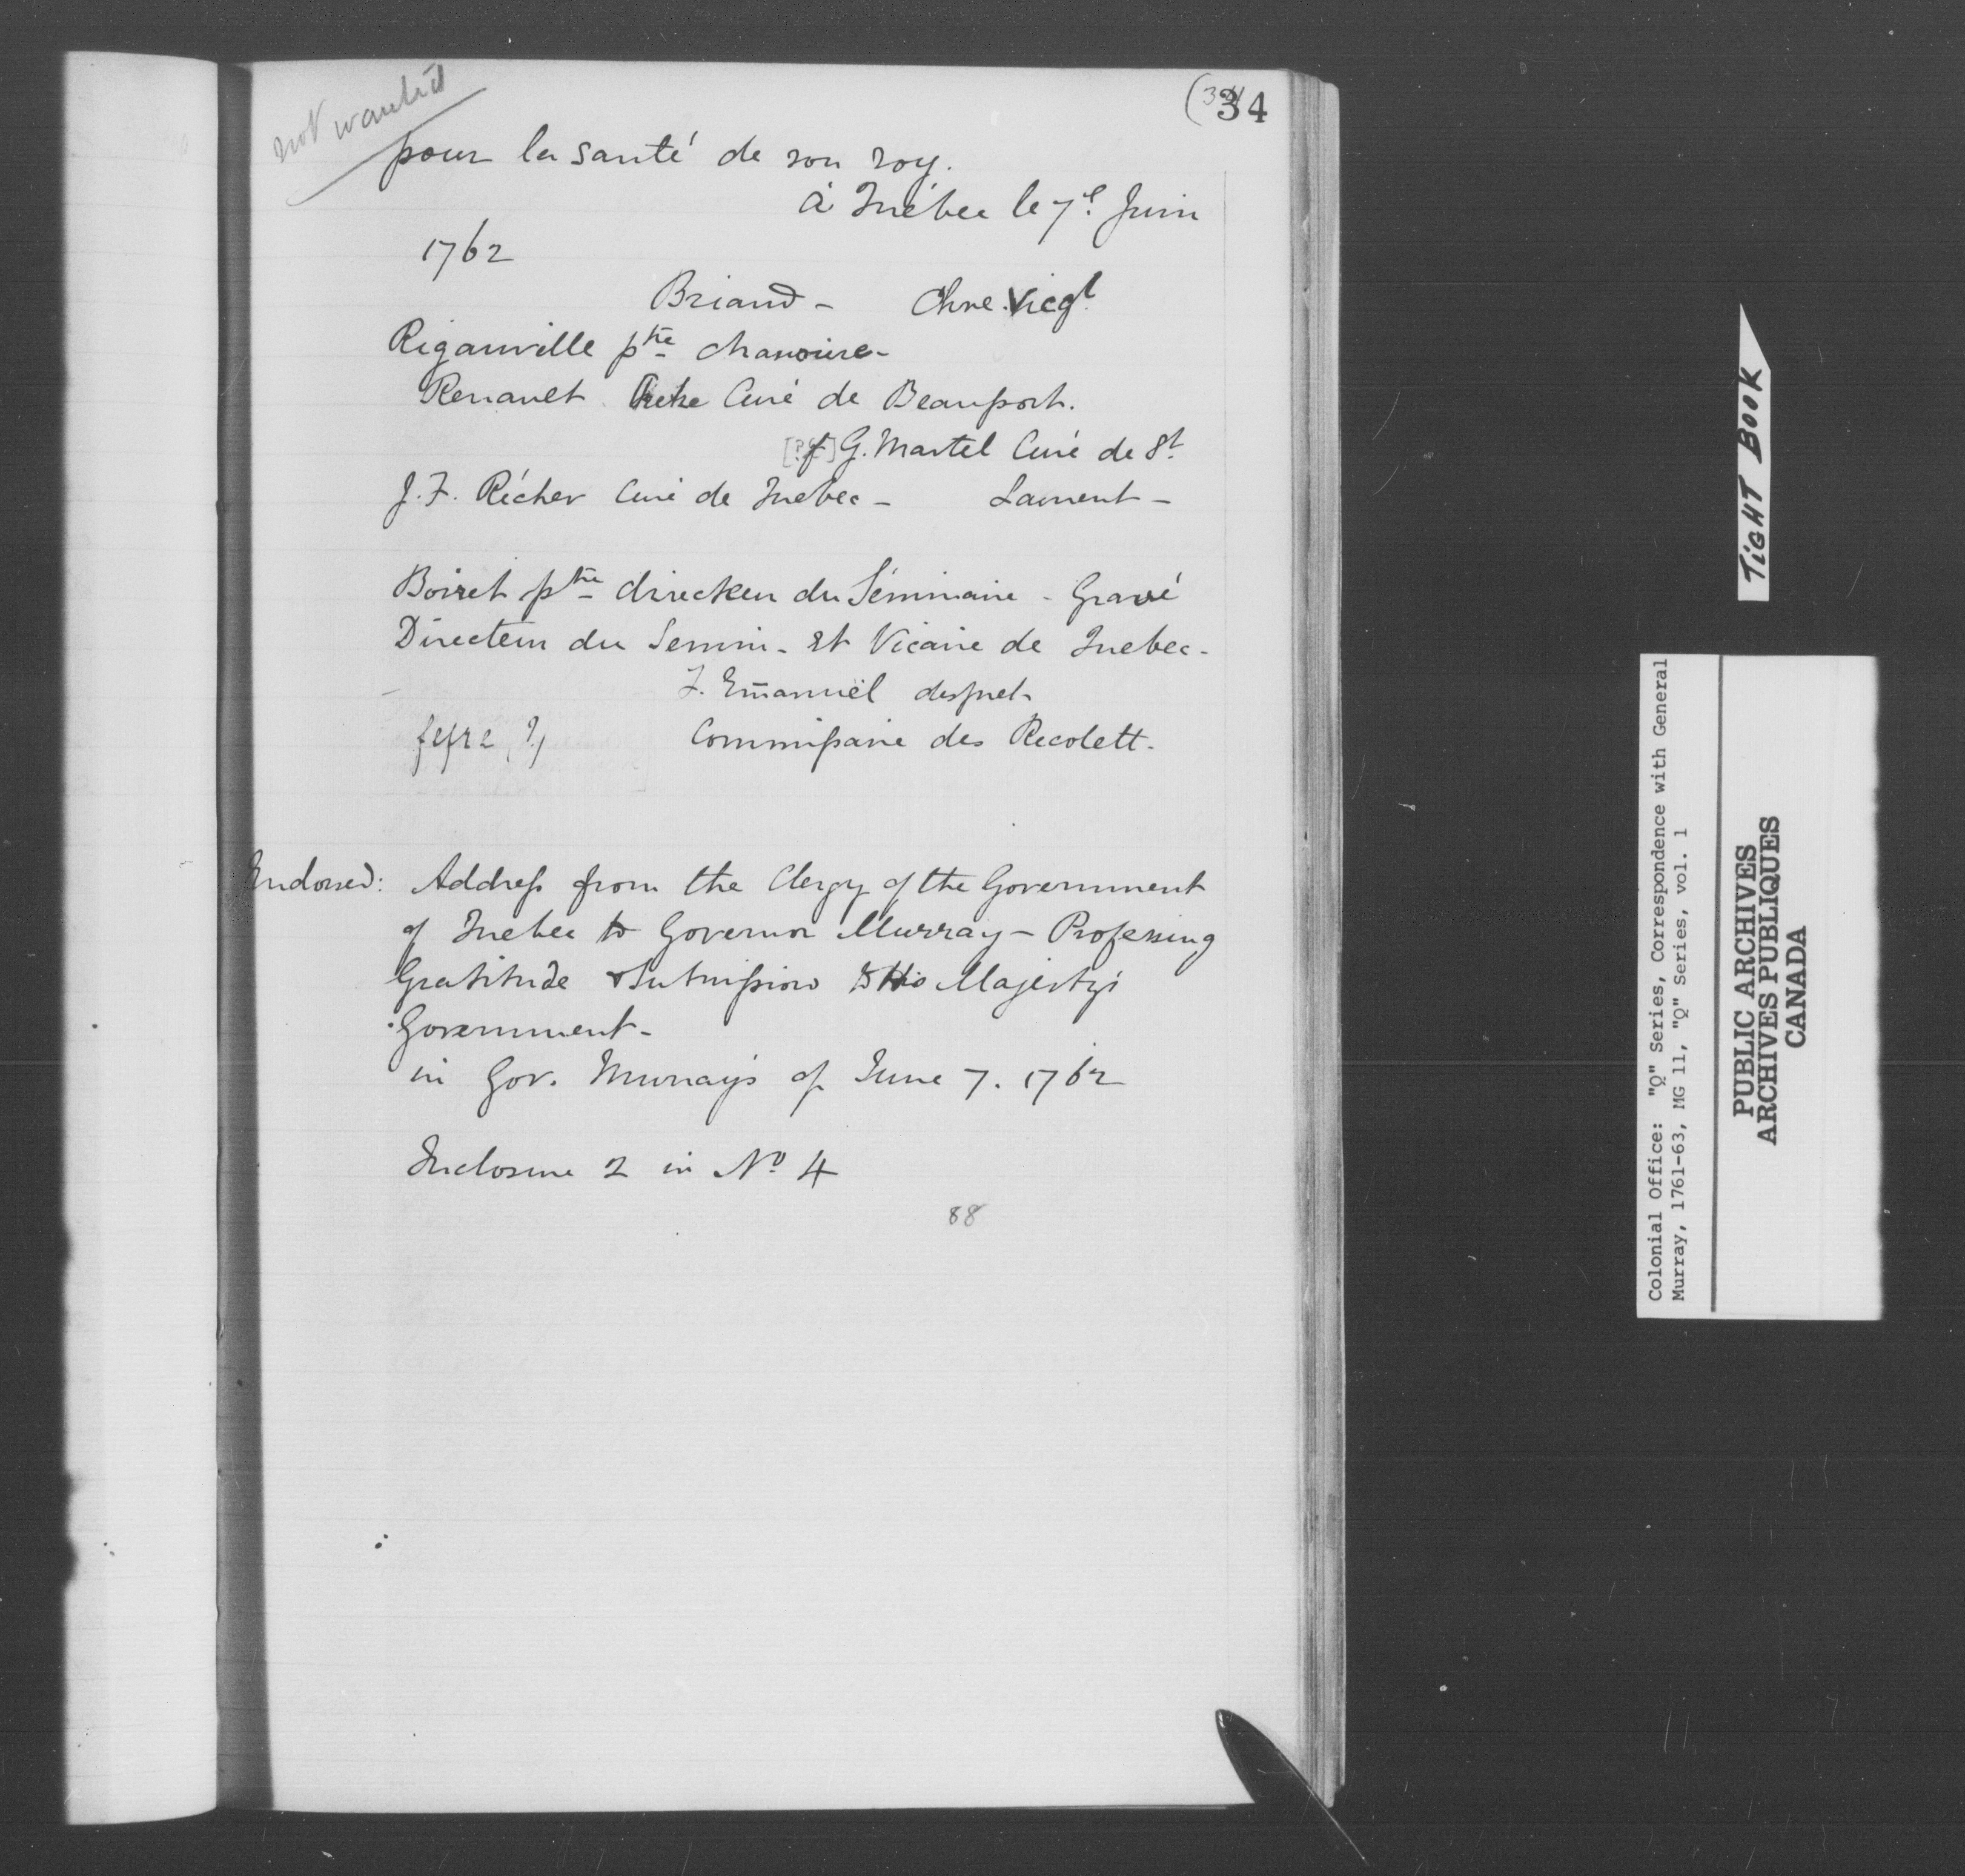 not wanted
(34
34
pour la santé de son roy.
à Québec le 7e. Juin
1762
Briand - Chne. Vicgl
Rigauville ptre chanoine -
Renauet Prêtre Curé de Beauport.
[?] f G. Martel Curé de St.
J. F. Récher Curé de Quebec - Laurent -
Boiret ptre directeur du Séminaire - Gravé
Directeur du Semin. et Vicaire de Quebec -
F. Em̄anuël
Commissaire des Recolett.
Endorsed: Address from the Clergy of the Government
of Quebec to Governor Murray - Professing
Gratitude & Submission to His Majesty's
Government -
in Gov. Murray's of June 7. 1762
Inclosure 2 in No. 4
88
TIGHT BOOK
Colonial Office: "Q" Series, Correspondence with General
Murray, 1761-63, MG 11, "Q" Series, vol. 1
PUBLIC ARCHIVES
ARCHIVES PUBLIQUES
CANADA